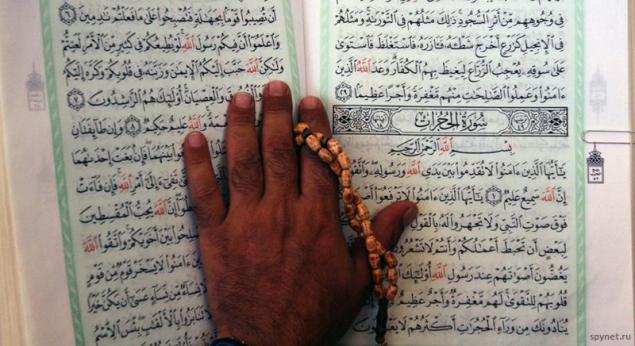 فِى وُجُوهِهِم مِّنْ أَثَرِ ٱلسُّجُودِ ذَٰلِكَ مَثَلُهُمْ فِى ٱلتَّوْرَىٰةِ وَمَثَلُهُمْ
فِى ٱلْإِنجِيلِ كَزَرْعٍ أَخْرَجَ شَطْـَٔهُۥ فَـَٔازَرَهُۥ فَٱسْتَغْلَظَ فَٱسْتَوَىٰ
عَلَىٰ سُوقِهِۦ يُعْجِبُ ٱلزُّرَّاعَ لِيَغِيظَ بِهِمُ ٱلْكُفَّارَ وَعَدَ ٱللَّهُ ٱلَّذِينَ
ءَامَنُوا۟ وَعَمِلُوا۟ ٱلصَّٰلِحَٰتِ مِنْهُم مَّغْفِرَةً وَأَجْرًا عَظِيمًۢا ٢٩
سُورَةُ الحُجُرَاتِ
بِسْمِ ٱللَّهِ ٱلرَّحْمَٰنِ ٱلرَّحِيمِ
يَٰٓأَيُّهَا ٱلَّذِينَ ءَامَنُوا۟ لَا تُقَدِّمُوا۟ بَيْنَ يَدَىِ ٱللَّهِ وَرَسُولِهِۦ وَٱتَّقُوا۟
إِنَّ ٱللَّهَ سَمِيعٌ عَلِيمٌ ١ يَٰٓأَيُّهَا ٱلَّذِينَ ءَامَنُوا۟ لَا تَرْفَعُوٓا۟
فَوْقَ صَوْتِ ٱلنَّبِىِّ وَلَا تَجْهَرُوا۟ لَهُۥ بِٱلْقَوْلِ
لِبَعْضٍ أَن تَحْبَطَ أَعْمَٰلُكُمْ وَأَنتُمْ لَا تَشْعُرُونَ
يَغُضُّونَ أَصْوَٰتَهُمْ عِندَ رَسُولِ ٱللَّهِ أُو۟لَٰٓئِكَ
قُلُوبَهُمْ لِلتَّقْوَىٰ لَهُم مَّغْفِرَةٌ وَأَجْرٌ عَظِيمٌ
يُنَادُونَكَ مِن وَرَآءِ ٱلْحُجُرَٰتِ أَكْثَرُهُمْ لَا يَعْقِلُونَ
أَن تُصِيبُوا۟ قَوْمًۢا بِجَهَٰلَةٍ فَتُصْبِحُوا۟ عَلَىٰ مَا فَعَلْتُمْ نَٰدِمِينَ ٦
وَٱعْلَمُوٓا۟ أَنَّ فِيكُمْ رَسُولَ ٱللَّهِ لَوْ يُطِيعُكُمْ فِى كَثِيرٍ مِّنَ ٱلْأَمْرِ لَعَنِتُّمْ
وَلَٰكِنَّ ٱللَّهَ حَبَّبَ إِلَيْكُمُ ٱلْإِيمَٰنَ وَزَيَّنَهُۥ فِى قُلُوبِكُمْ وَكَرَّهَ إِلَيْكُمُ
وَٱلْعِصْيَانَ أُو۟لَٰٓئِكَ هُمُ ٱلرَّٰشِدُونَ ٧
ٱللَّهِ وَٱللَّهُ عَلِيمٌ حَكِيمٌ ٨ وَإِن طَآئِفَتَانِ
بَيْنَهُمَا فَإِنۢ بَغَتْ إِحْدَىٰهُمَا
تَفِىٓءَ إِلَىٰٓ أَمْرِ ٱللَّهِ فَإِن فَآءَتْ
إِنَّ ٱللَّهَ يُحِبُّ ٱلْمُقْسِطِينَ
فَأَصْلِحُوا۟ بَيْنَ أَخَوَيْكُمْ وَٱتَّقُوا۟ ٱللَّهَ
ءَامَنُوا۟ لَا يَسْخَرْ قَوْمٌ مِّن قَوْمٍ
نِسَآءٌ مِّن نِّسَآءٍ عَسَىٰٓ أَن يَكُنَّ خَيْرًا
تَنَابَزُوا۟ بِٱلْأَلْقَٰبِ بِئْسَ ٱلِٱسْمُ
spynet.ru